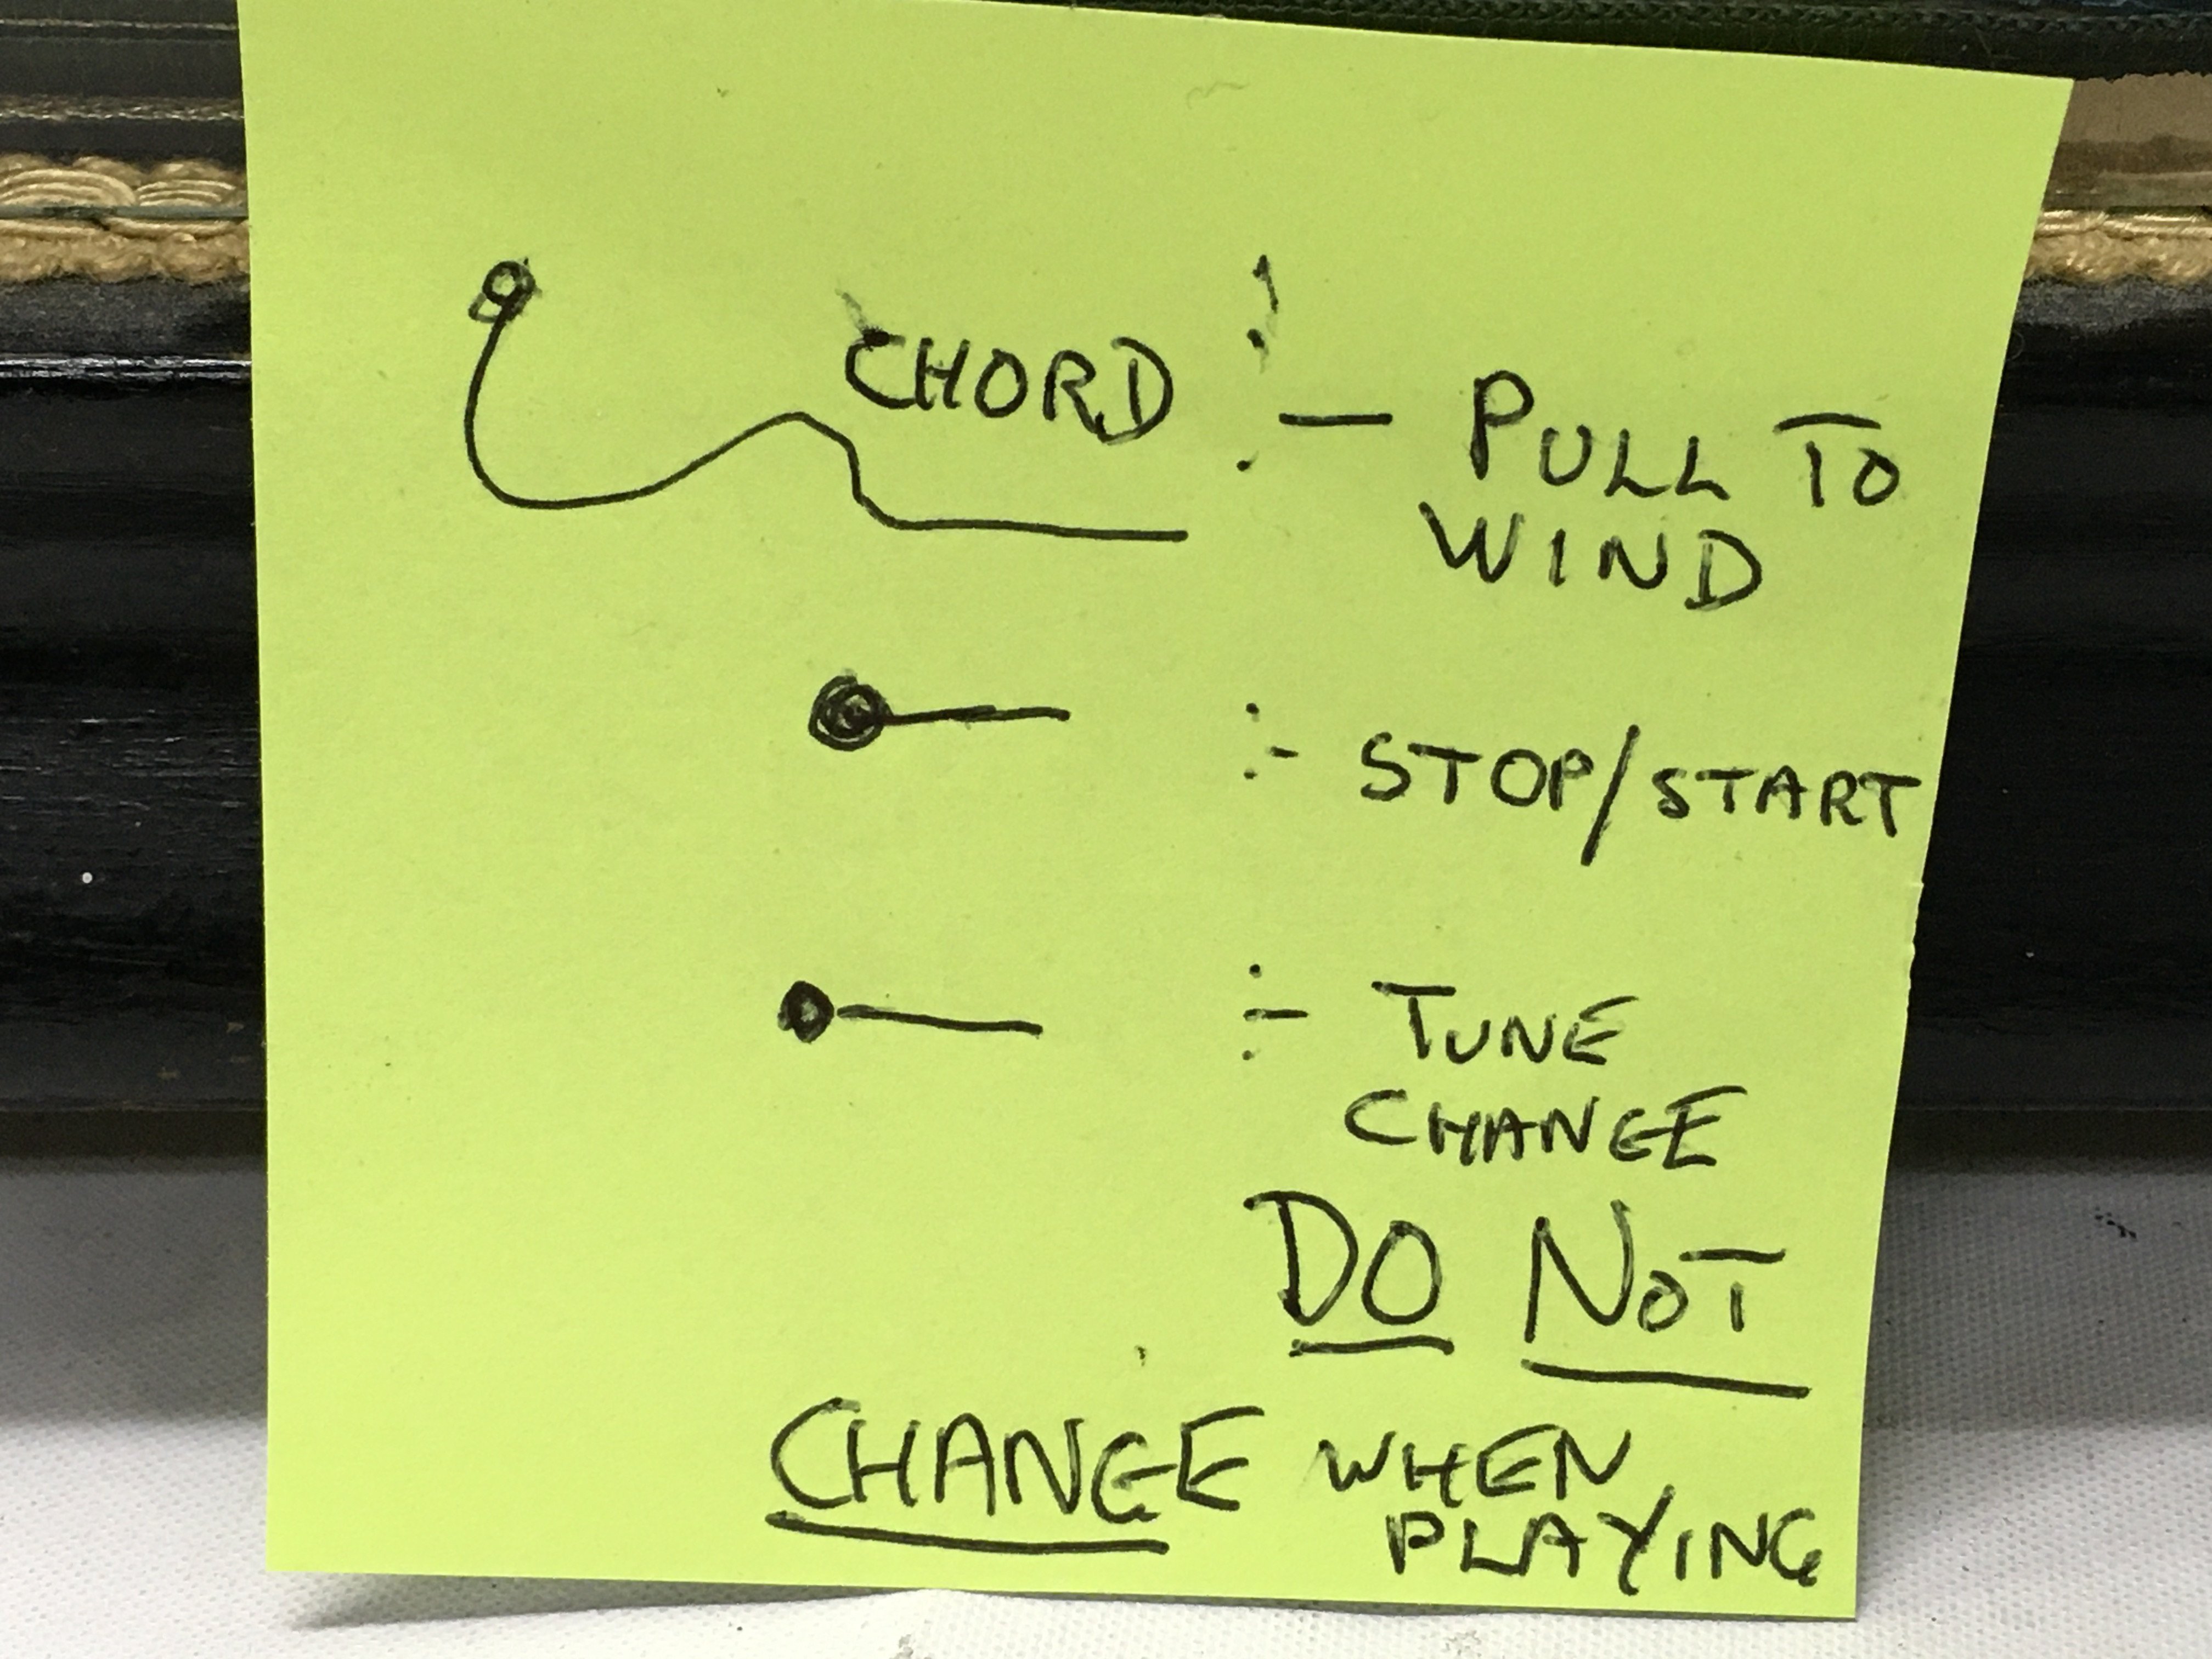 CHORD :- PULL TO
WIND
:- STOP/START
:- TUNE
CHANGE
DO NOT
CHANGE WHEN
PLAYING